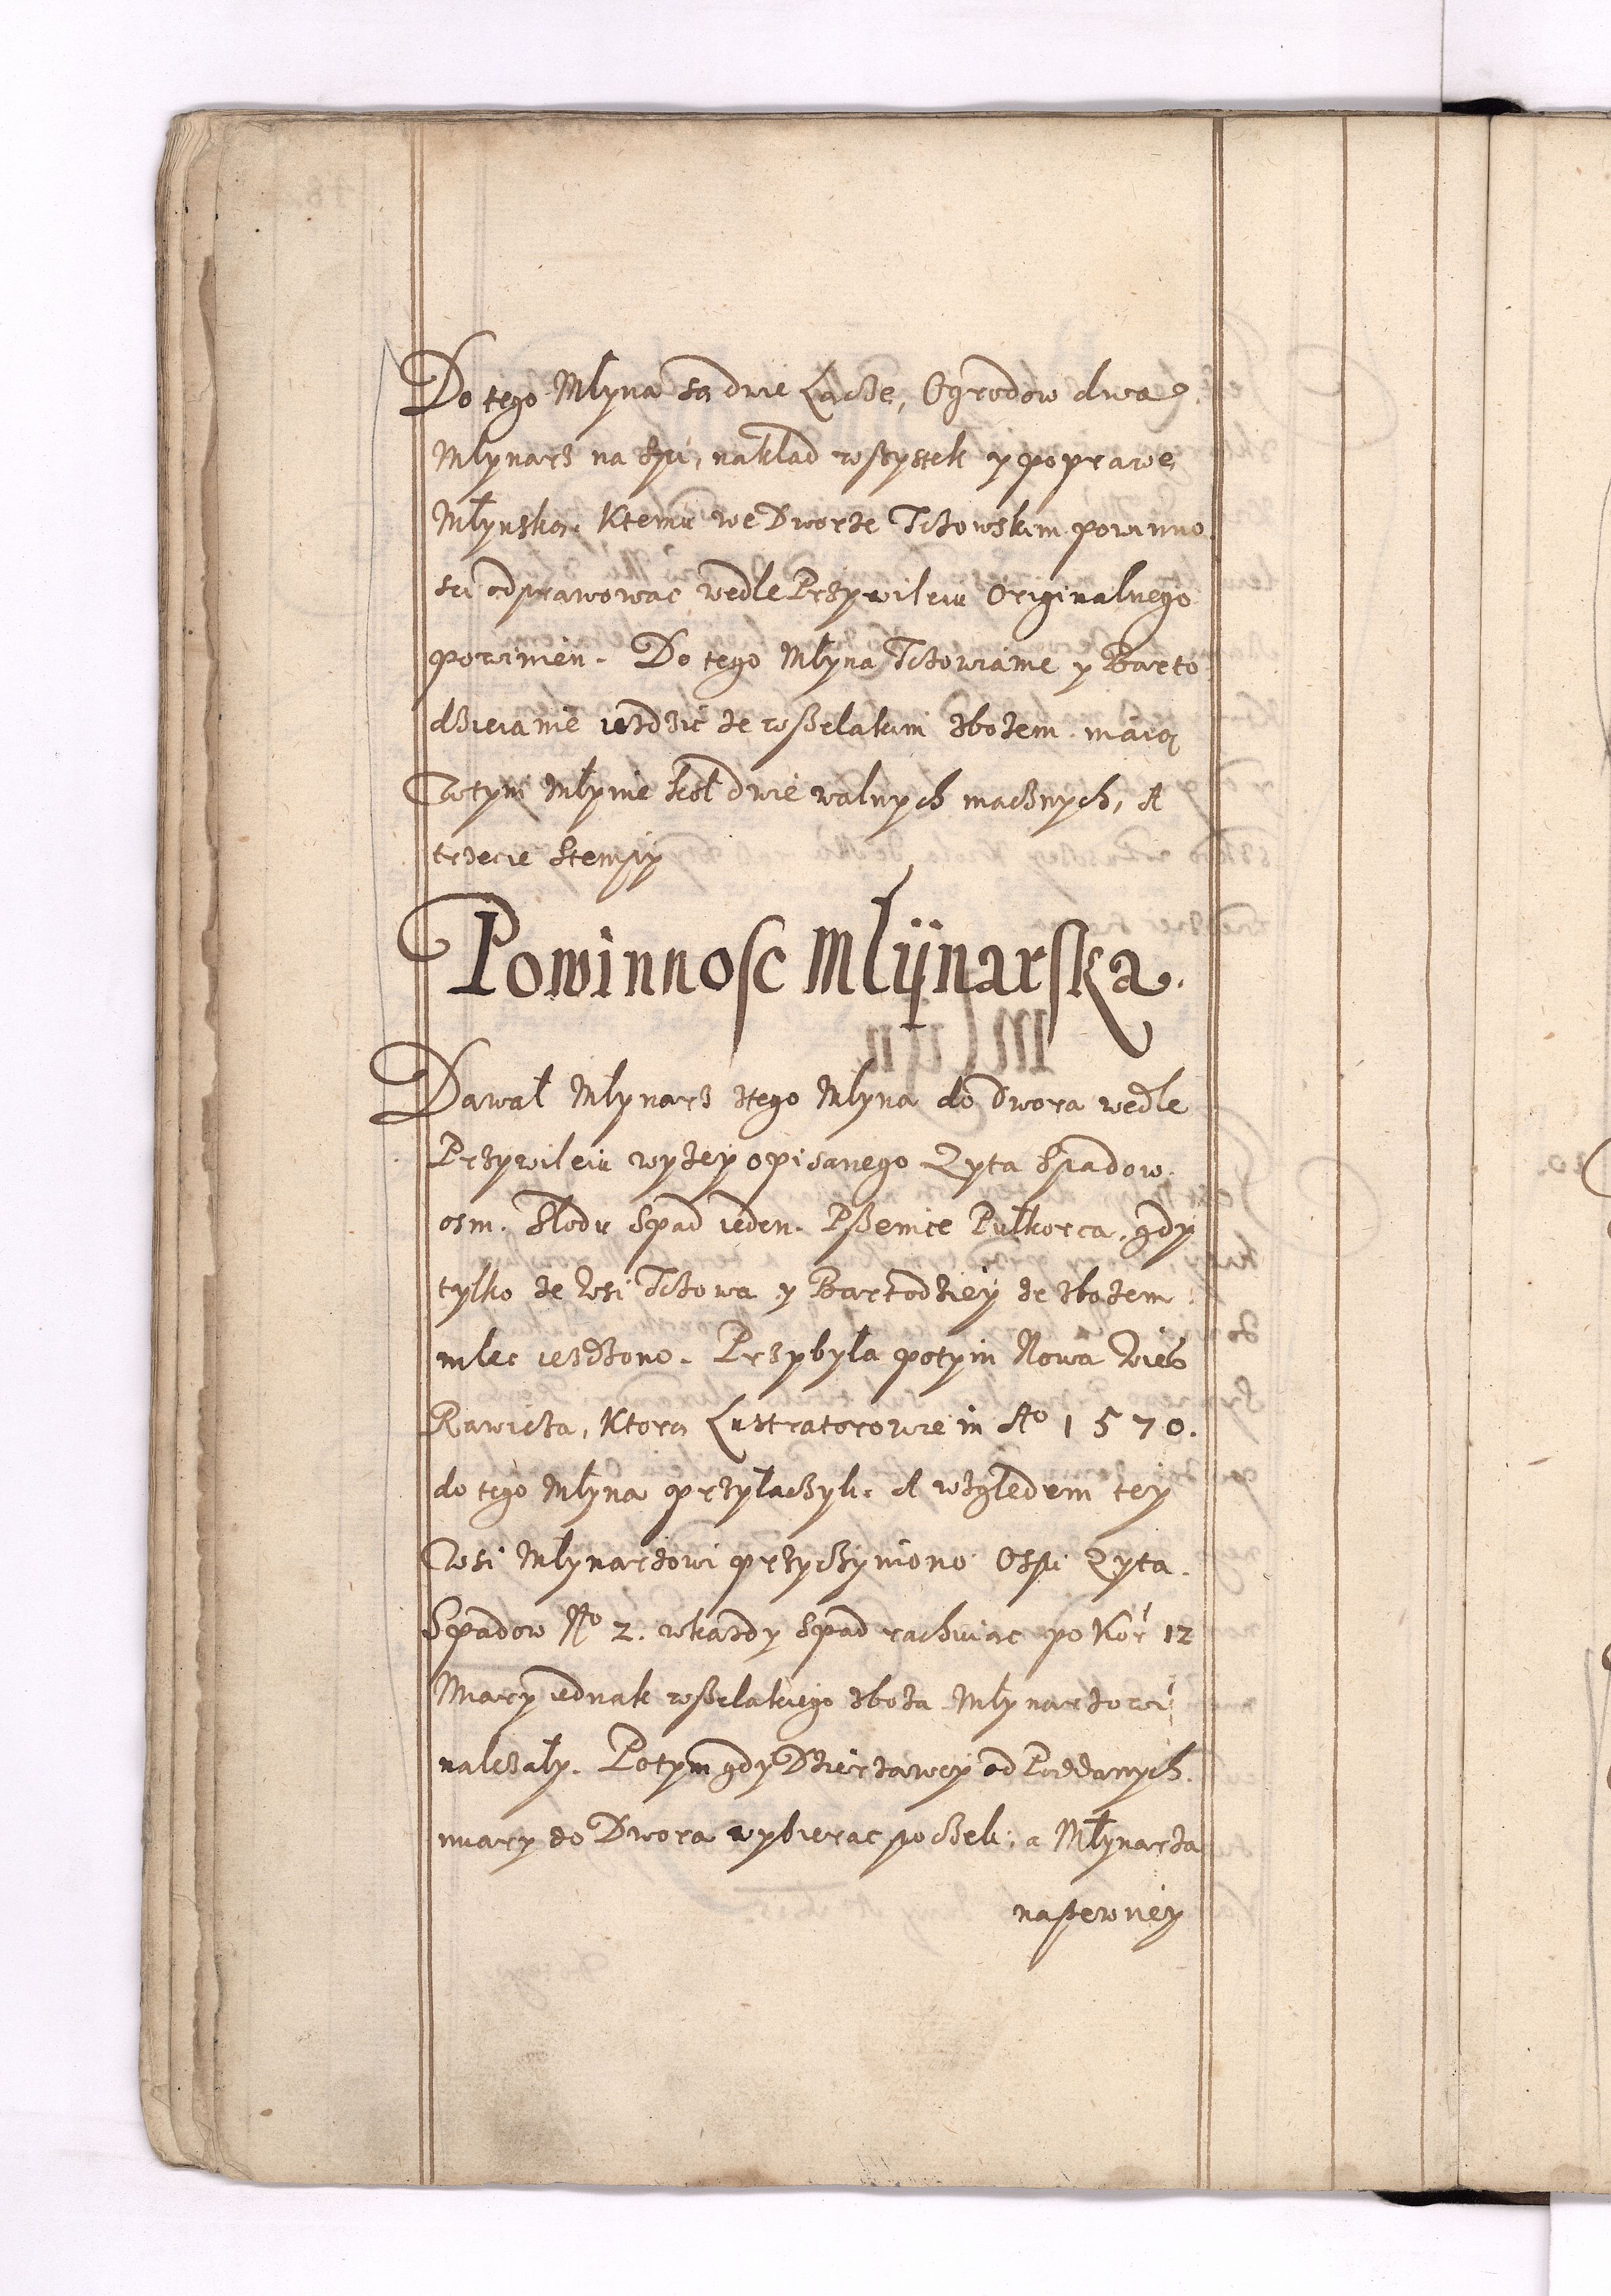 Do tego Mlyna są dwie Lacże, Ogrodow dwa
Mlynarz na spi, naklad wszystek y poprawę
Mlynską. Ktemu we Dworze Tczowskim powinno
sci odprawowac wedle Przywileiu Originalnego
powinien. Do tego Mlyna Tczowianie y Barto
dzieianie iezdzic ze wszelakim zbozem maią
W tym Mlynie kol dwie walnych macznych, A
trzecie Stempy
Powinnosc Mlÿnarska.
Dawal Mlynarz ztego Mlyna do Dwora wedle
Przywileiu wyzey opisanego Zyta Spadow
osm. Slodu Spad ieden. Pszenice Pulkorca, gdy
tylko ze Wsi Tczowa y Bartodziey ze zbozem
mlec iezdzono. Przybyla potym Nowa Wies
Rawicza, Ktorą Lustratorowie in Ao 1570.
do tego Mlyna przylaczyli. A względem tey
Wsi Mlynarzowi przyczyniono Ospi Zyta
Spadow No 2. wkazdy Spad rachuiąc po Kor 12
Miary iednak wszelakiego zboza Mlynarzowi
nalezaly. Potym gdy Dzierzawcy od Poddanych
miary do Dwora wybierac poczeli; a Mlynarza
napewney